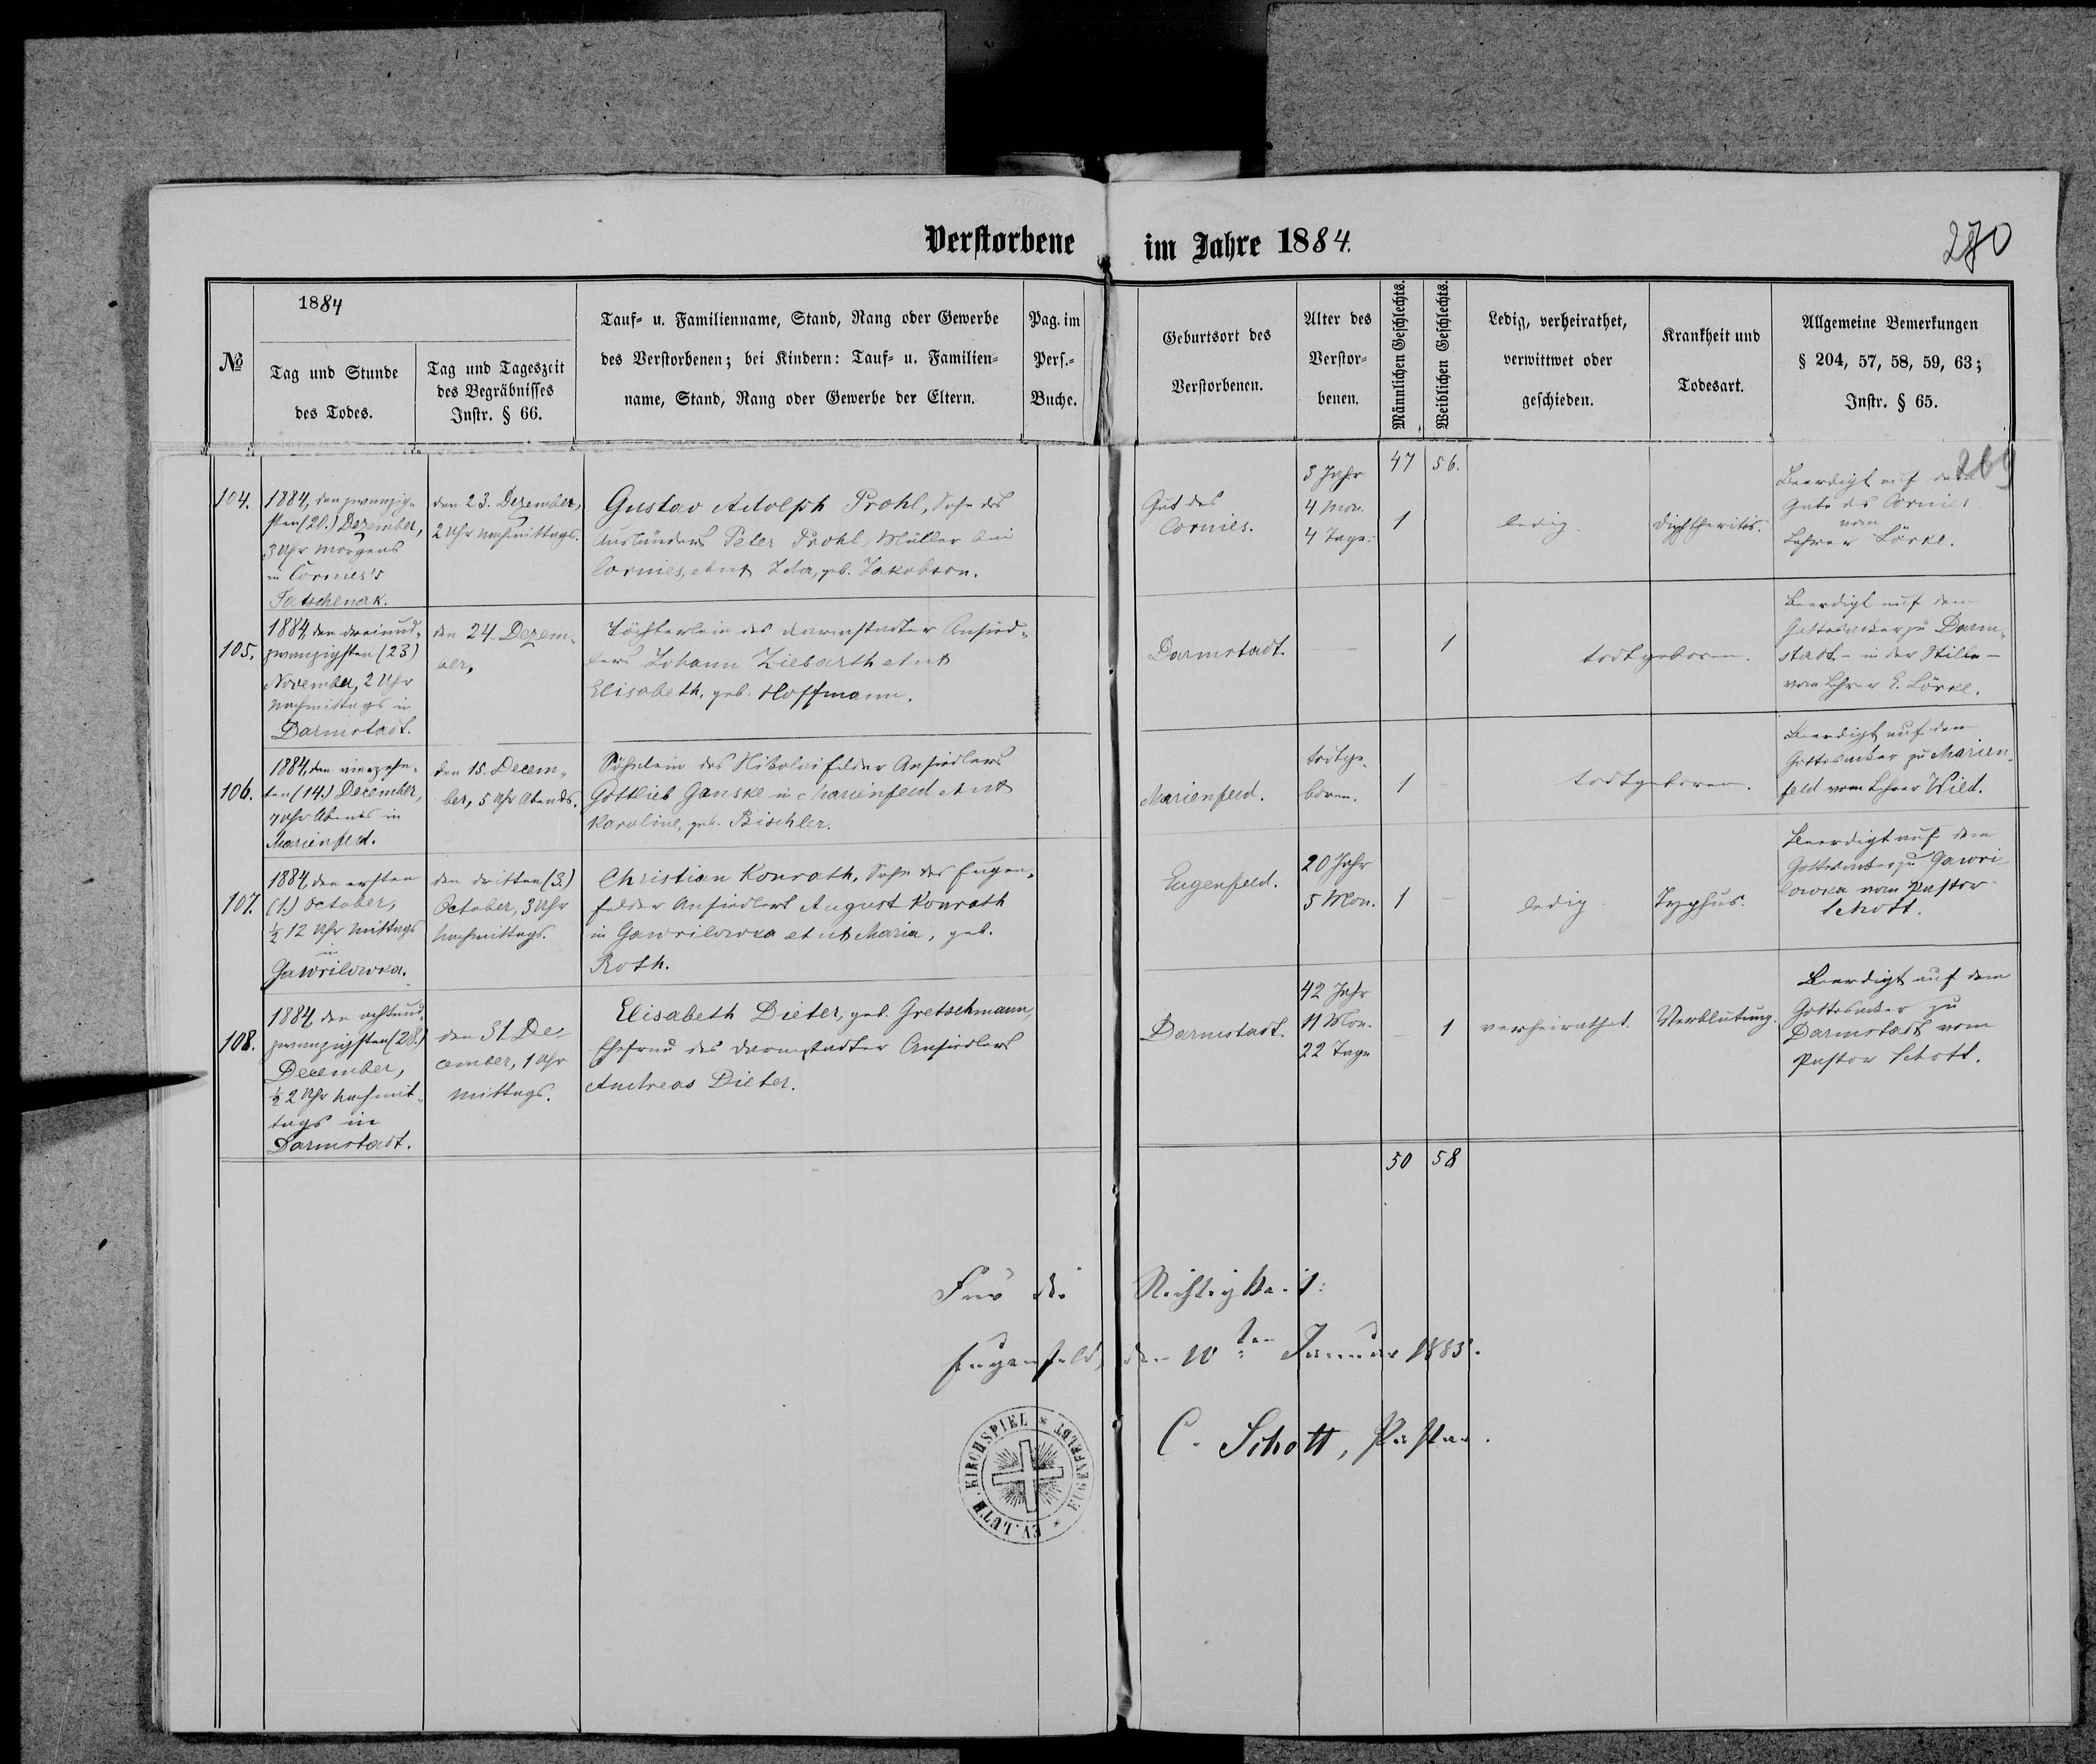 Verstorbene im Jahre 1884.
270
№
1884
Tag und Stunde
des Todes.
Tag und Tageszeit
des Begräbnisses
Instr. § 66.
Tauf- u. Familienname, Stand, Rang oder Gewerbe
des Verstorbenen; bei Kindern: Tauf- u. Familien-
name, Stand, Rang oder Gewerbe der Eltern.
Pag. im
Pers.-
Buche.
Geburtsort des
Verstorbenen.
Alter des
Verstor-
benen.
Männlichen Geschlechts.
Weiblichen Geschlechts.
Ledig, verheirathet,
verwittwet oder
geschieden.
Krankheit und
Todesart.
Allgemeine Bemerkungen
§ 204, 57, 58, 59, 63;
Instr. § 65.
47 56.
269
104.
1884, den zwanzig-
sten (20.) Dezember,
3 Uhr Morgens
in Cornies's
Tatschenak.
den 23. Dezember,
2 Uhr Nachmittags.
Gustav Adolph Prohl, Sohn des
Ausländers Peter Prohl, Müller bei
Cornies, et ux Ida, geb. Jakobson.
Gut des
Cornies.
3 Jahr
4 Mon.
4 Tage.
1
ledig.
Diphtheritis.
Beerdigt auf dem
Gute des Cornies
vom
Lehrer Lörke.
105.
1884, den dreiund-
zwanzigsten (23)
November, 2 Uhr
Nachmittags in
Darmstadt.
den 24. Dezem-
ber,
Töchterlein des Darmstadter Ansied-
lers Johann Ziebarth et ux
Elisabeth, geb. Hoffmann.
Darmstadt.
—
1
todtgeboren.
Beerdigt auf dem
Gottesacker zu Darm-
stadt – in der Stille –
vom Lehrer E. Lörke.
106.
1884, den vierzehn-
ten (14.) December,
7 Uhr Abends in
Marienfeld.
den 15. Decem-
ber, 5 Uhr Abends.
Söhnlein des Nikolaifelder Ansiedlers
Gottlieb Ganske in Marienfeld et ux
Karoline, geb. Bischler.
Marienfeld.
todtge-
boren.
1
–
todtgeboren.
Beerdigt auf dem
Gottesacker zu Marien-
feld vom Lehrer Wild.
107.
1884, den ersten
(1.) October,
½ 12 Uhr Mittags
in
Gawrilowka.
den dritten (3.)
October, 3 Uhr
Nachmittags.
Christian Konrath, Sohn des Eugen-
felder Ansiedlers August Konrath
in Gawrilowka et ux Maria, geb.
Roth.
Eugenfeld.
20 Jahr
5 Mon.
1
–
ledig.
Typhus.
Beerdigt auf dem
Gottesacker zu Gawri-
lowka vom Pastor
Schott.
108.
1884, den achtund-
zwanzigsten (28.)
December,
½ 2 Uhr Nachmit-
tags in
Darmstadt.
den 31. De-
cember, 1 Uhr
Mittags.
Elisabeth Dieter, geb. Gretschmann,
Ehefrau des Darmstadter Ansiedlers
Andreas Dieter.
Darmstadt.
42 Jahr
11 Mon.
22 Tage
–
1
verheirathet.
Verblutung.
Beerdigt auf dem
Gottesacker zu
Darmstadt vom
Pastor Schott.
50 58
Für die Richtigkeit:
Eugenfeld, den 10ten Januar 1885.
C. Schott, Pastor.
EV. LUTH. KIRCHSPIEL * EUGENFELD *